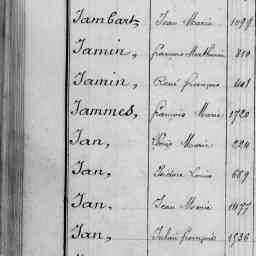 Jambart, Jean Marie 1099
Jamin, François Mathurin 310
Jamin, René François
Jammes, François Marie 1720
Jan, Louis Marie 224
Jan, Isidore Louis 689
Jan, Jean Marie 1477
Jan, Julien François 1536